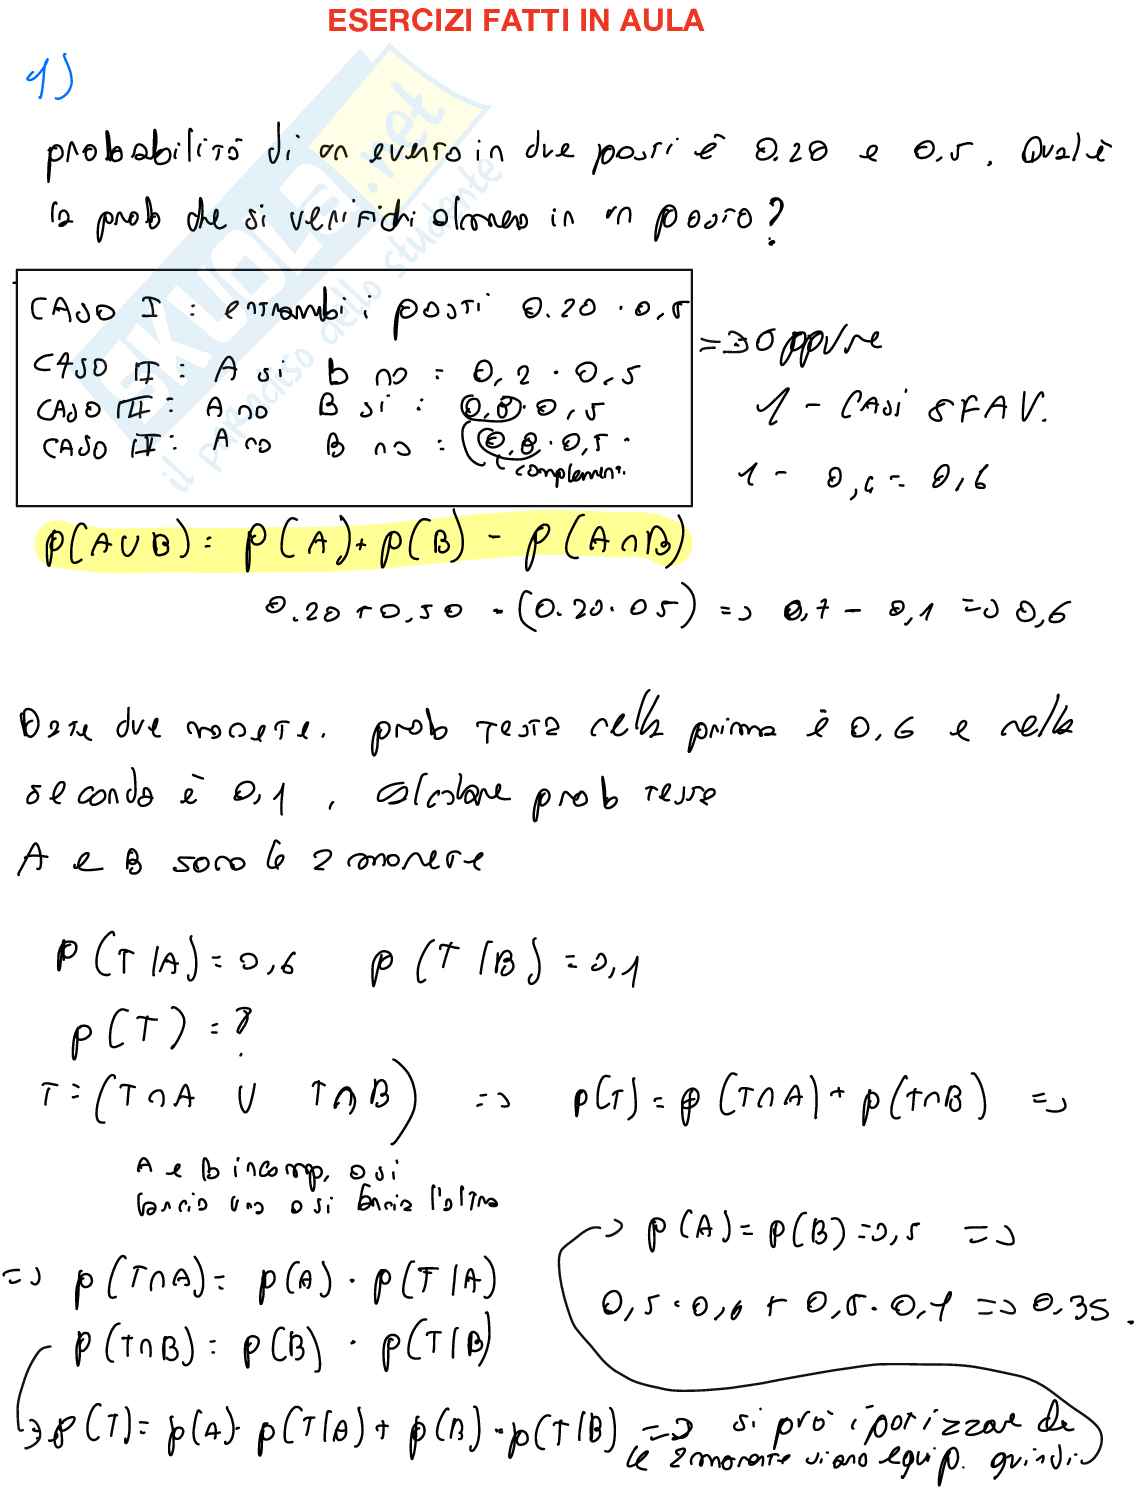 ESERCIZI FATTI IN AULA
1)
probabilità di un evento in due posti è 0.20 e 0,5. Qual è
la prob che si verifichi almeno in un posto?
CASO I : entrambi i posti 0.20 · 0,5
CASO II : A si b no = 0,2 · 0,5
CASO III : A no B si : 0,8 · 0,5
CASO IV : A no B no = (0,8 · 0,5 ·
complement.
=> Oppure
1 - CASI SFAV.
1 - 0,4 = 0,6
P(A∪B) = P(A) + P(B) - P(A∩B)
0.20 + 0,50 - (0.20 · 05) => 0,7 - 0,1 => 0,6
Date due monete. prob testa nella prima è 0,6 e nella
seconda è 0,1 , calcolare prob testa
A e B sono le 2 monete
P(T|A) = 0,6 P(T|B) = 0,1
P(T) = ?
T = (T∩A ∪ T∩B) => P(T) = P(T∩A) + P(T∩B) =>
A e B incomp. o si
lancia una o si lancia l'altra
=> P(T∩A) = P(A) · P(T|A)
P(T∩B) = P(B) · P(T|B)
=> P(T) = P(A) · P(T|A) + P(B) · P(T|B) => si può ipotizzare che
le 2 monete siano equip. quindi
=> P(A) = P(B) = 0,5 =>
0,5 · 0,6 + 0,5 · 0,1 => 0.35 .
SKUOLA.net
il paradiso dello studente